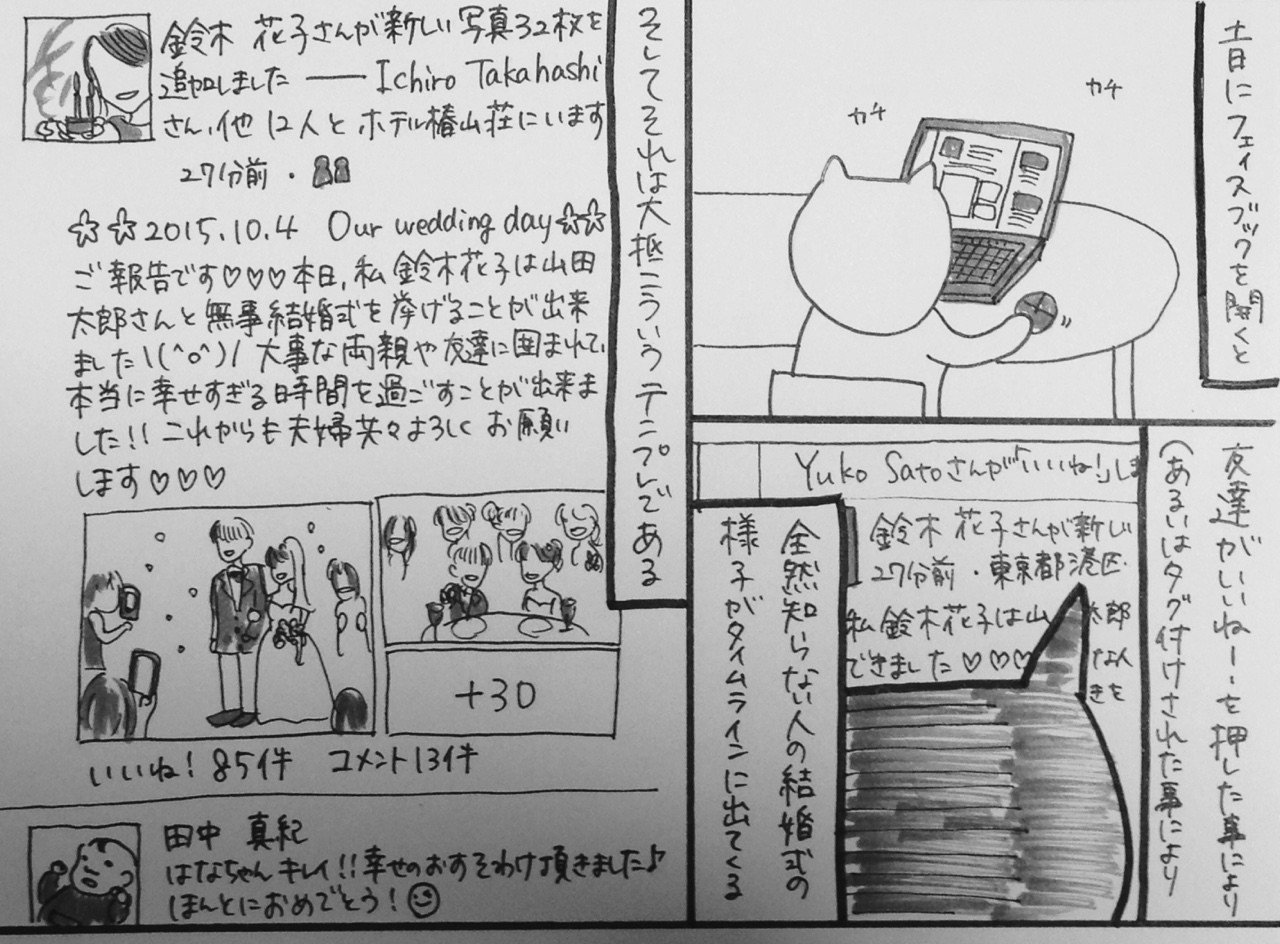 土日にフェイスブックを開くと
カチ
カチ
友達がいいねーを押した事により
(あるいはタグ付けされた事により
Yuko Satoさんが「いいね!」しま
鈴木 花子さんが新しい
27分前・東京都港区・
私 鈴木花子は山 太郎
できました♡♡♡ な人
きを
全然知らない人の結婚式の
様子がタイムラインに出てくる
そしてそれは大抵こういうテンプレである
鈴木 花子さんが新しい写真32枚を
追加しました ── Ichiro Takahashi
さん、他12人とホテル椿山荘にいます
27分前・
☆☆2015.10.4 Our wedding day☆☆
ご報告です♡♡♡本日、私 鈴木花子は山田
太郎さんと無事結婚式を挙げることが出来
ました\(^o^)/ 大事な両親や友達に囲まれて、
本当に幸せすぎる時間を過ごすことが出来ま
した!! これからも夫婦共々よろしくお願い
します♡♡♡
+30
いいね! 85件 コメント13件
田中 真紀
はなちゃんキレイ!!幸せのおすそわけ頂きました♪
ほんとにおめでとう!☺